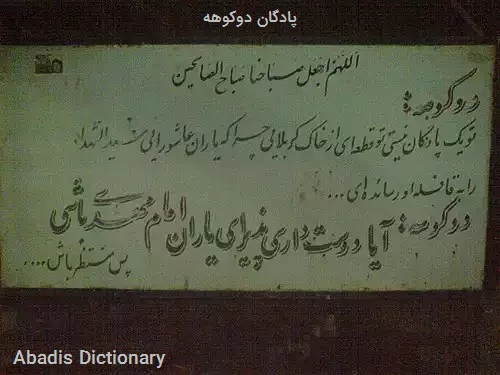 پادگان دوکوهه
اللهم اجعل صباحنا صباح الصالحین
دوکوهه:
تو یک پادگان نیستی تو قطعه‌ای از خاک کربلایی چرا که یاران عاشورایی سیدالشهداء
را به قافله او رسانده‌ای ...
دوکوهه: آیا دوست داری پذیرای یاران امام مهدی باشی
پس منتظر باش ....
Abadis Dictionary